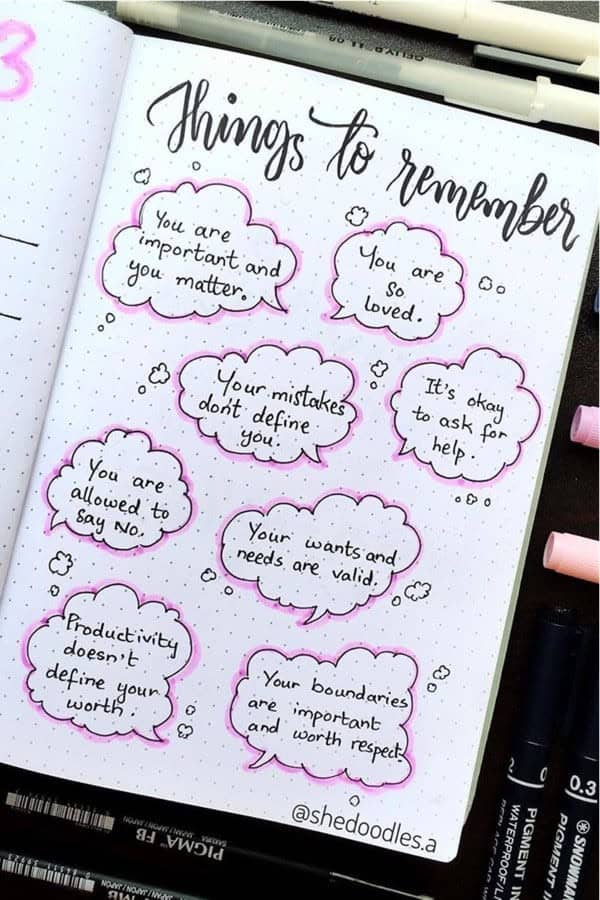 3
GELLY R 08
Things to remember
You are
important and
you matter.
You are
so
loved.
Your mistakes
don't define
you.
It's okay
to ask for
help.
You are
allowed to
Say No.
Your wants and
needs are valid.
Productivity
doesn't
define your
worth.
Your boundaries
are important
and worth respect.
@shedoodles.a
PIGMA FB
SAKURA / JAPAN
PIGMENT IN
WATERPROOF/L
0.3
SNOWMAN
PIGMENT
MB